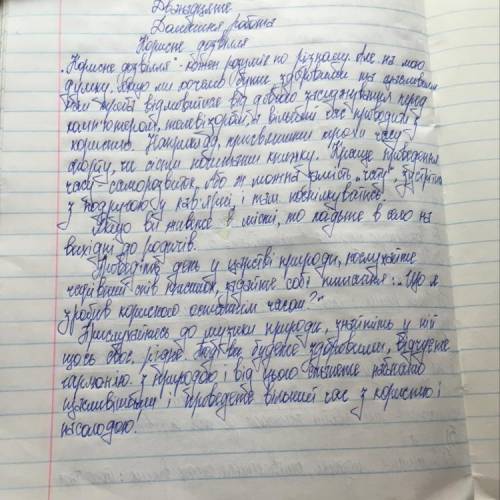 Дванадцяте
Домашня робота
Корисне дозвілля
"Корисне дозвілля" - кожен розуміє по різному. Але на мою
думку. Якщо ми хочемо бути здоровими та щасливими
нам треба відмовитися від довгого засиджування перед
комп'ютером, телевізором, а вільний час проводити з
користю. Наприклад, присвятивши трохи часу
спорту, чи читанню книжку. Краще проведення
часу - саморозвиток. Або ж можна замість "чату" зустрітися
з подругою у кав'ярні, і там поспілкуватися.
Якщо ви живете в місті, то поїдьте в село на
вихідні до родичів.
Проведіть день у царстві природи, послухайте
чарівний спів пташок, задайте собі питання: "Що я
зробив корисного останнім часом?"
Прислухайтесь до музики природи, знайдіть у ній
щось своє, рідне. Тоді ви будете здоровими, відчуєте
гармонію з природою і від цього станете набагато
щасливішими і проведете вільний час з користю і
насолодою.